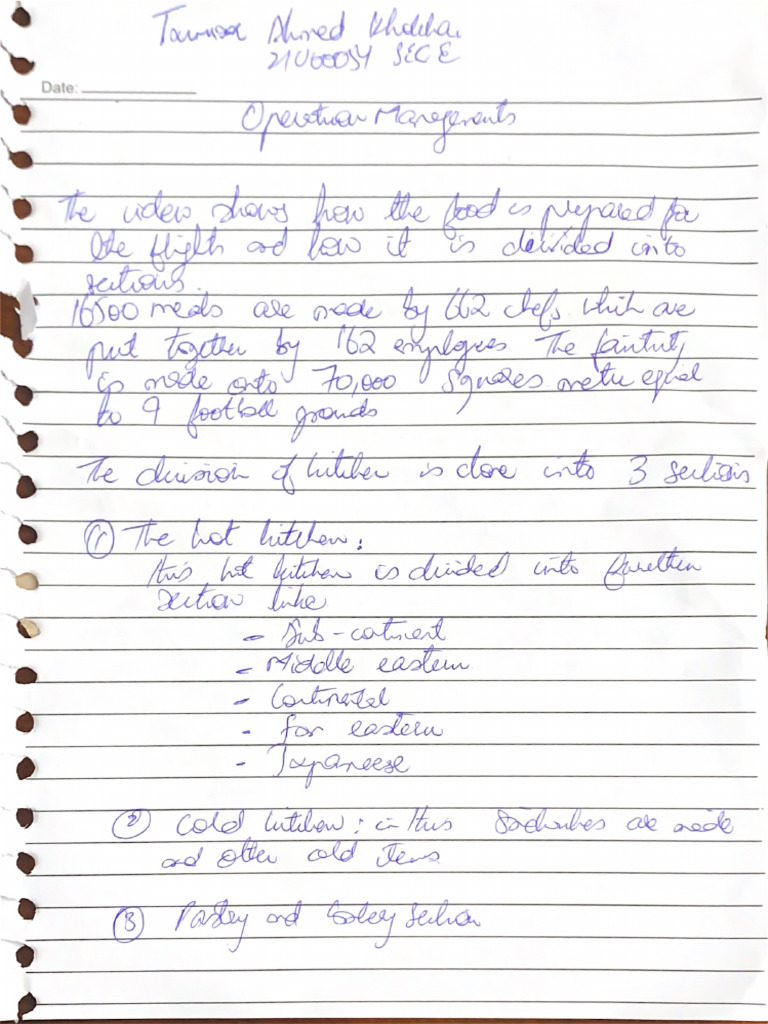 Ahmed
SEC E
Date:
Operation Managements
The video shows how the food is prepared for
the flights and how it is divided into
sections.
16500 meals are made by 662 chefs which are
put together by 162 employees The
is made onto 70,000 squares metre equal
to 9 football grounds
The division of kitchen is done into 3 sections
(1) The hot kitchen:
this hot kitchen is divided into further
section like
- Sub-continent
- Middle eastern
- Continental
- far eastern
- Japaneese
(2) Cold kitchen: in this Sandwiches are made
and other cold items
(3) Pastry and section